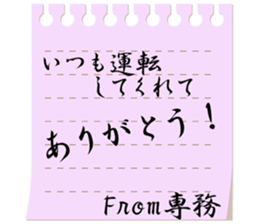 いつも運転
してくれて
ありがとう!
From専務